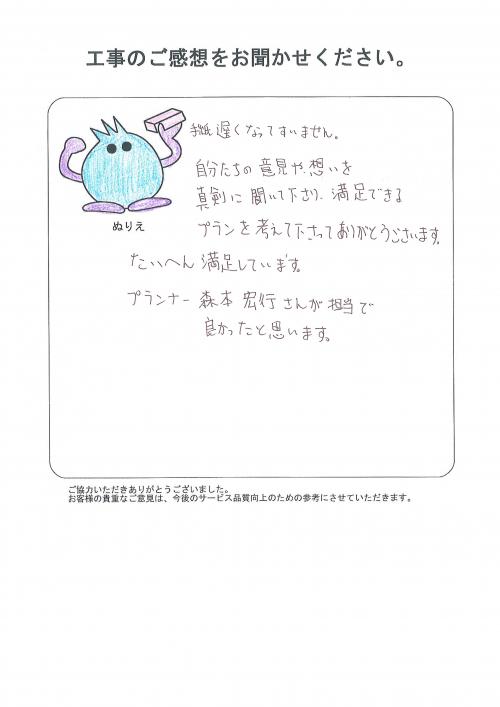 工事のご感想をお聞かせください。
手紙遅くなってすいません。
自分たちの意見や想いを
真剣に聞いて下さり、満足できる
プランを考えて下さってありがとうございます。
ぬりえ
たいへん満足しています。
プランナー 森本 宏行さんが担当で
良かったと思います。
ご協力いただきありがとうございました。
お客様の貴重なご意見は、今後のサービス品質向上のための参考にさせていただきます。